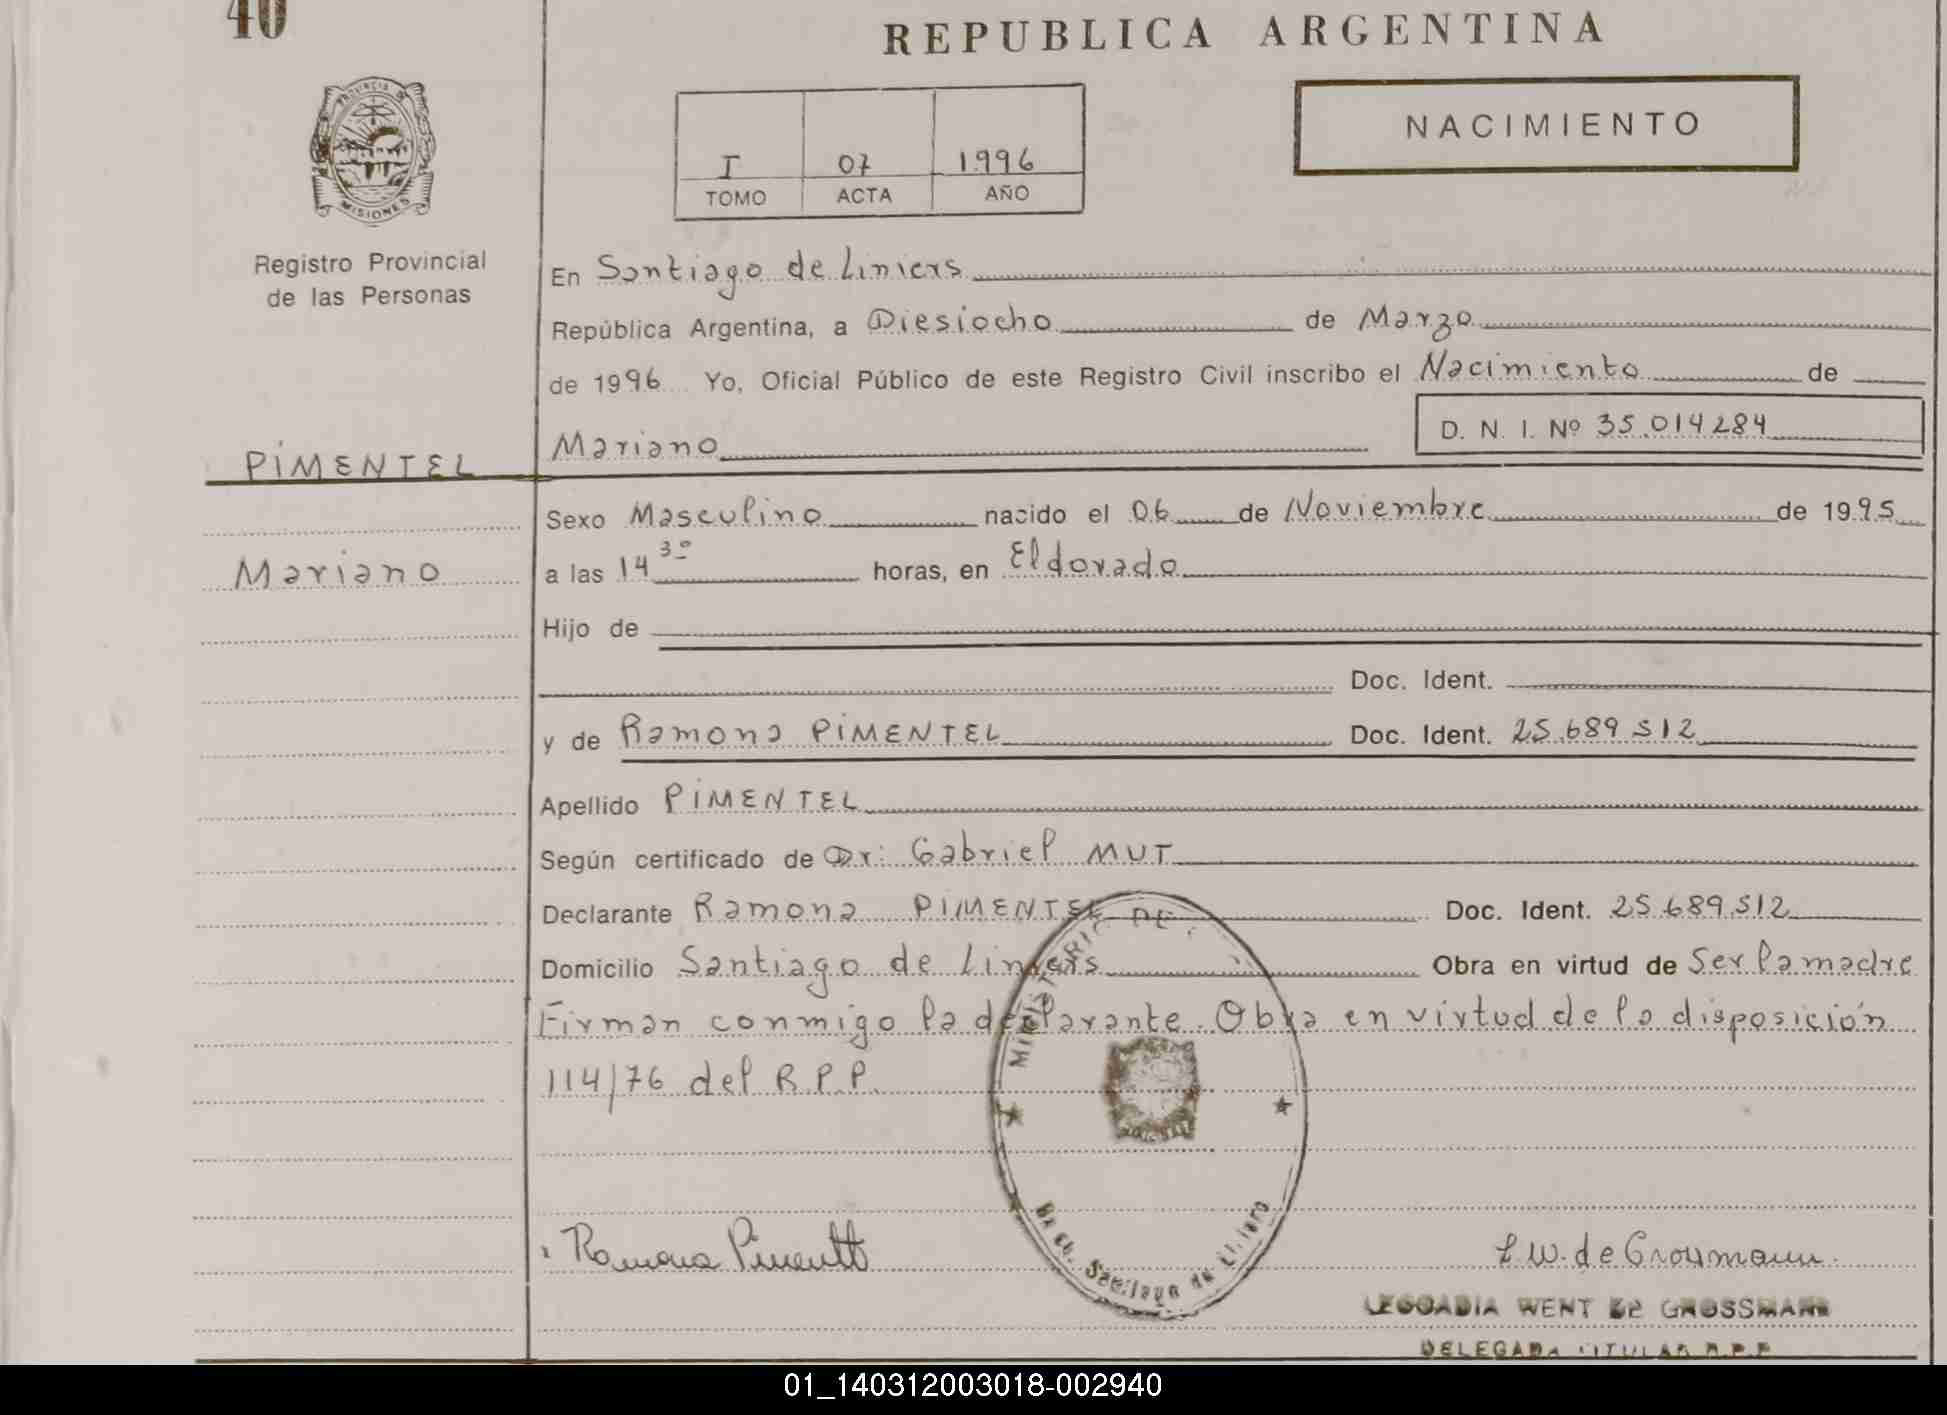 40
REPUBLICA ARGENTINA
PROVINCIA DE
MISIONES
I 07 1996
TOMO ACTA AÑO
NACIMIENTO
Registro Provincial
de las Personas
En Santiago de Liniers
República Argentina, a Diesiocho de Marzo
de 1996 Yo, Oficial Público de este Registro Civil inscribo el Nacimiento de
Mariano D. N. I. Nº 35.014284
PIMENTEL
Mariano
Sexo Masculino nacido el 06 de Noviembre de 1995
a las 14 30 horas, en Eldorado
Hijo de
Doc. Ident.
y de Ramona PIMENTEL Doc. Ident. 25.689.512
Apellido PIMENTEL
Según certificado de Dr: Gabriel MUT
Declarante Ramona PIMENTEL Doc. Ident. 25.689.512
Domicilio Santiago de Liniers Obra en virtud de Ser la madre
Firman conmigo la declarante. Obra en virtud de la disposición
114/76 del R.P.P.
MINISTERIO DE
Santiago de
Ramona Pimentel
L.W. de Grossmann.
LEOCADIA WENT DE GROSSMANN
DELEGADA TITULAR R.P.P
01_140312003018-002940